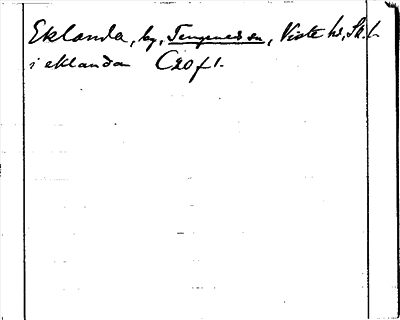 Eklanda, by, Tengene sn, Viste hd, Sk. l.
i eklandom C20 f 1.